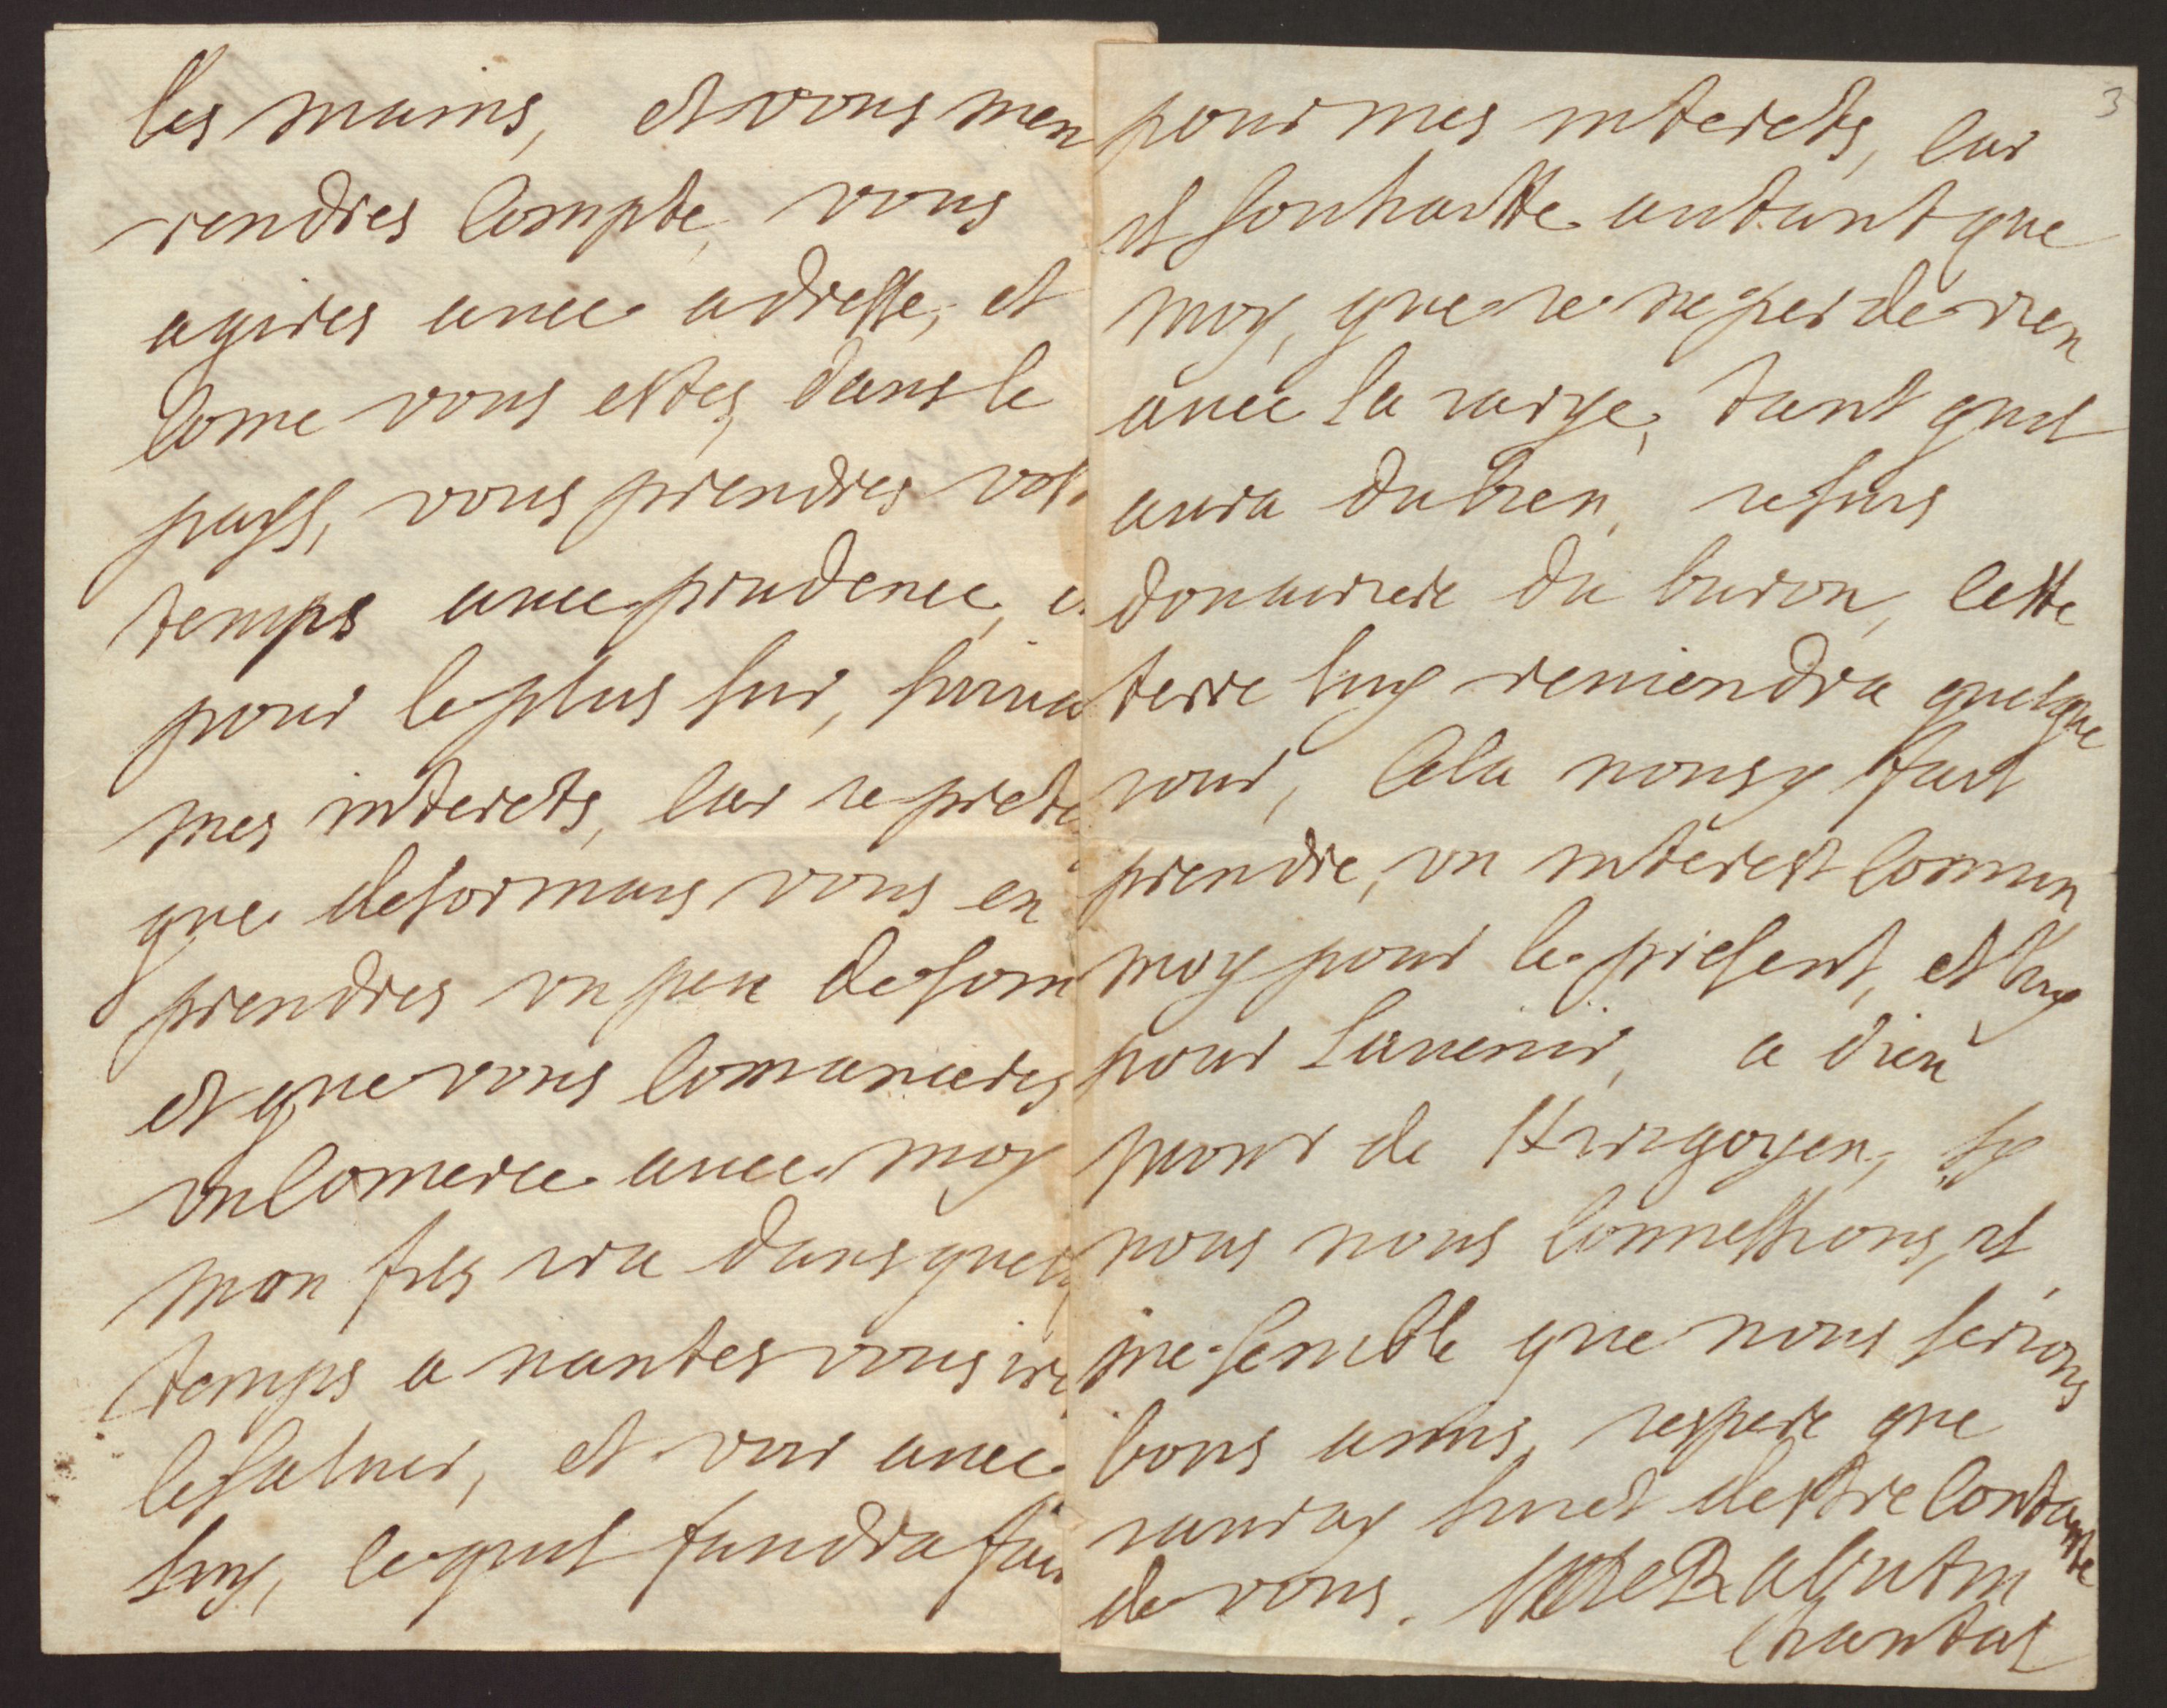 les mains, et vous men
rendres compte, vous
agires avec adresse, et
come vous estes dans le
pays, vous prendres vot
temps avec prudence, e
pour le plus sur, suiva
mes interets, car ie prete
que desormais vous en
prendres un peu de soin
et que vous comanceres
un comerce avec moy
mon fils ira dans quelq
temps a nantes vous ire
le saluer, et voir avec
luy, ce quil faudra fair
3
pour mes interets, car
il souhaitte autant que
moy, que ie ne perde rien
avec la raiye, tant quil
aura du bien, ie suis
douairiere du buron, cette
terre luy reviendra quelque
iour, cela nous y fait
prendre, un interest comun
moy pour le present, et luy
pour lavenir, a dieu
monr de Hirigoyen, sy
nous nous connessions, il
me semble que nous serions
bons amis, iespere que
iauray suiet destre contante
de vous. M De Rabutin
Chantal